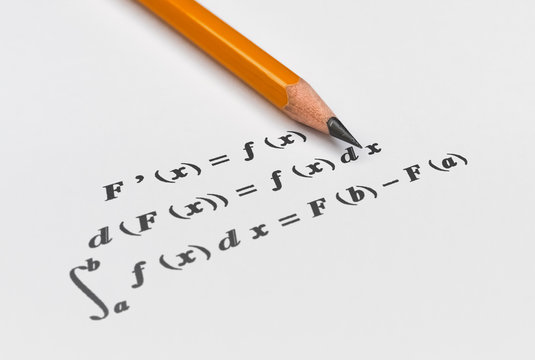 F'(x) = f(x)
d(F(x)) = f(x)dx
∫ₐᵇ f(x)dx = F(b) − F(a)